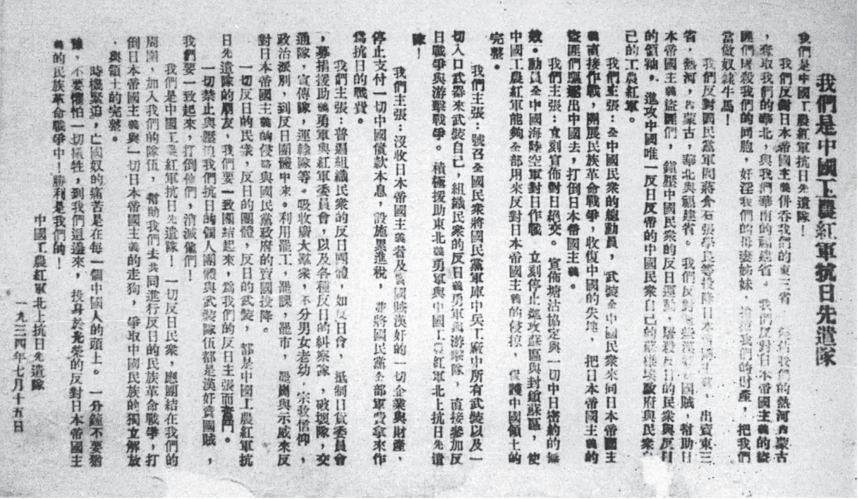 我們是中國工農紅軍抗日先遣隊
我們是中國工農紅軍抗日先遣隊！
我們反對日本帝國主義併吞我們的東三省 我們的熱河內蒙古
，奪取我們的華北，與我們華南的福建省。我們反對日本帝國主義的盜
匪們屠殺我們的同胞，奸淫我們的母妻姊妹， 我們的財產，把我們
當做奴隸牛馬！
我們反對國民黨軍閥蔣介石張學良等投降日本帝國主義，出賣東三
省，熱河，內蒙古，華北與福建省。我們反對 國賊，幫助日
本帝國主義盜匪們，鎮壓中國民衆的反日運動，屠殺反日的民衆與反日
的領袖，進攻中國唯一反日反帝的中國民衆自己的蘇維埃政府與民衆自
己的工農紅軍。
我們主張：全中國民衆的總動員，武裝全中國民衆來同日本帝國主
義直接作戰，開展民族革命戰爭，收復中國的失地，把日本帝國主義的
盜匪們驅逐出中國去，打倒日本帝國主義。
我們主張：立刻宣佈對日絕交。宣佈塘沽協定與一切中日密約的無
效。動員全中國海陸空軍對日作戰。立刻停止進攻蘇區與封鎖蘇區，使
中國工農紅軍能夠全部用來反對日本帝國主義的侵掠，保護中國領土的
完整。
我們主張：號召全國民衆將國民黨軍庫中兵工廠中所有武裝以及一
切入口武器來武裝自己，組織民衆的反日義勇軍與游擊隊，直接參加反
日戰爭與游擊戰爭。積極援助東北義勇軍與中國工農紅軍北上抗日先遣
隊！
我們主張：沒收日本帝國主義者及賣國賊漢奸的一切企業與財產，
停止支付一切中國債款本息，設施累進稅，並將國民黨全部軍費拿來作
爲抗日的戰費。
我們主張：普遍組織民衆的反日團體，如反日會，抵制日貨委員會
，募捐援助義勇軍與紅軍委員會，以及各種反日的糾察隊，破壞隊，交
通隊，宣傳隊，運輸隊等。吸收廣大羣衆，不分男女老幼，宗教信仰，
政治派別，到反日團體中來。利用罷工，罷課，罷市，罷崗與示威來反
對日本帝國主義的侵略與國民黨政府的賣國投降。
一切反日的民衆，反日的團體，反日的武裝，都是中國工農紅軍抗
日先遣隊的朋友，我們要一致團結起來，爲我們的反日主張而奮鬥。
一切禁止與壓迫我們抗日的個人團體與武裝隊伍都是漢奸賣國賊，
我們要一致起來，打倒他們，消滅他們！
我們是中國工農紅軍抗日先遣隊！一切反日民衆，應團結在我們的
周圍，加入我們的隊伍，幫助我們去共同進行反日的民族革命戰爭，打
倒日本帝國主義與一切日本帝國主義的走狗，爭取中國民族的獨立解放
，與領土的完整。
時機緊迫，亡國奴的痛苦是在每一個中國人的頭上。一分鐘不要猶
豫，不要懷怕一切犧牲，到我們這邊來，投身於光榮的反對日本帝國主
義的民族革命戰爭中！勝利是我們的！
中國工農紅軍北上抗日先遣隊
一九三四年七月十五日